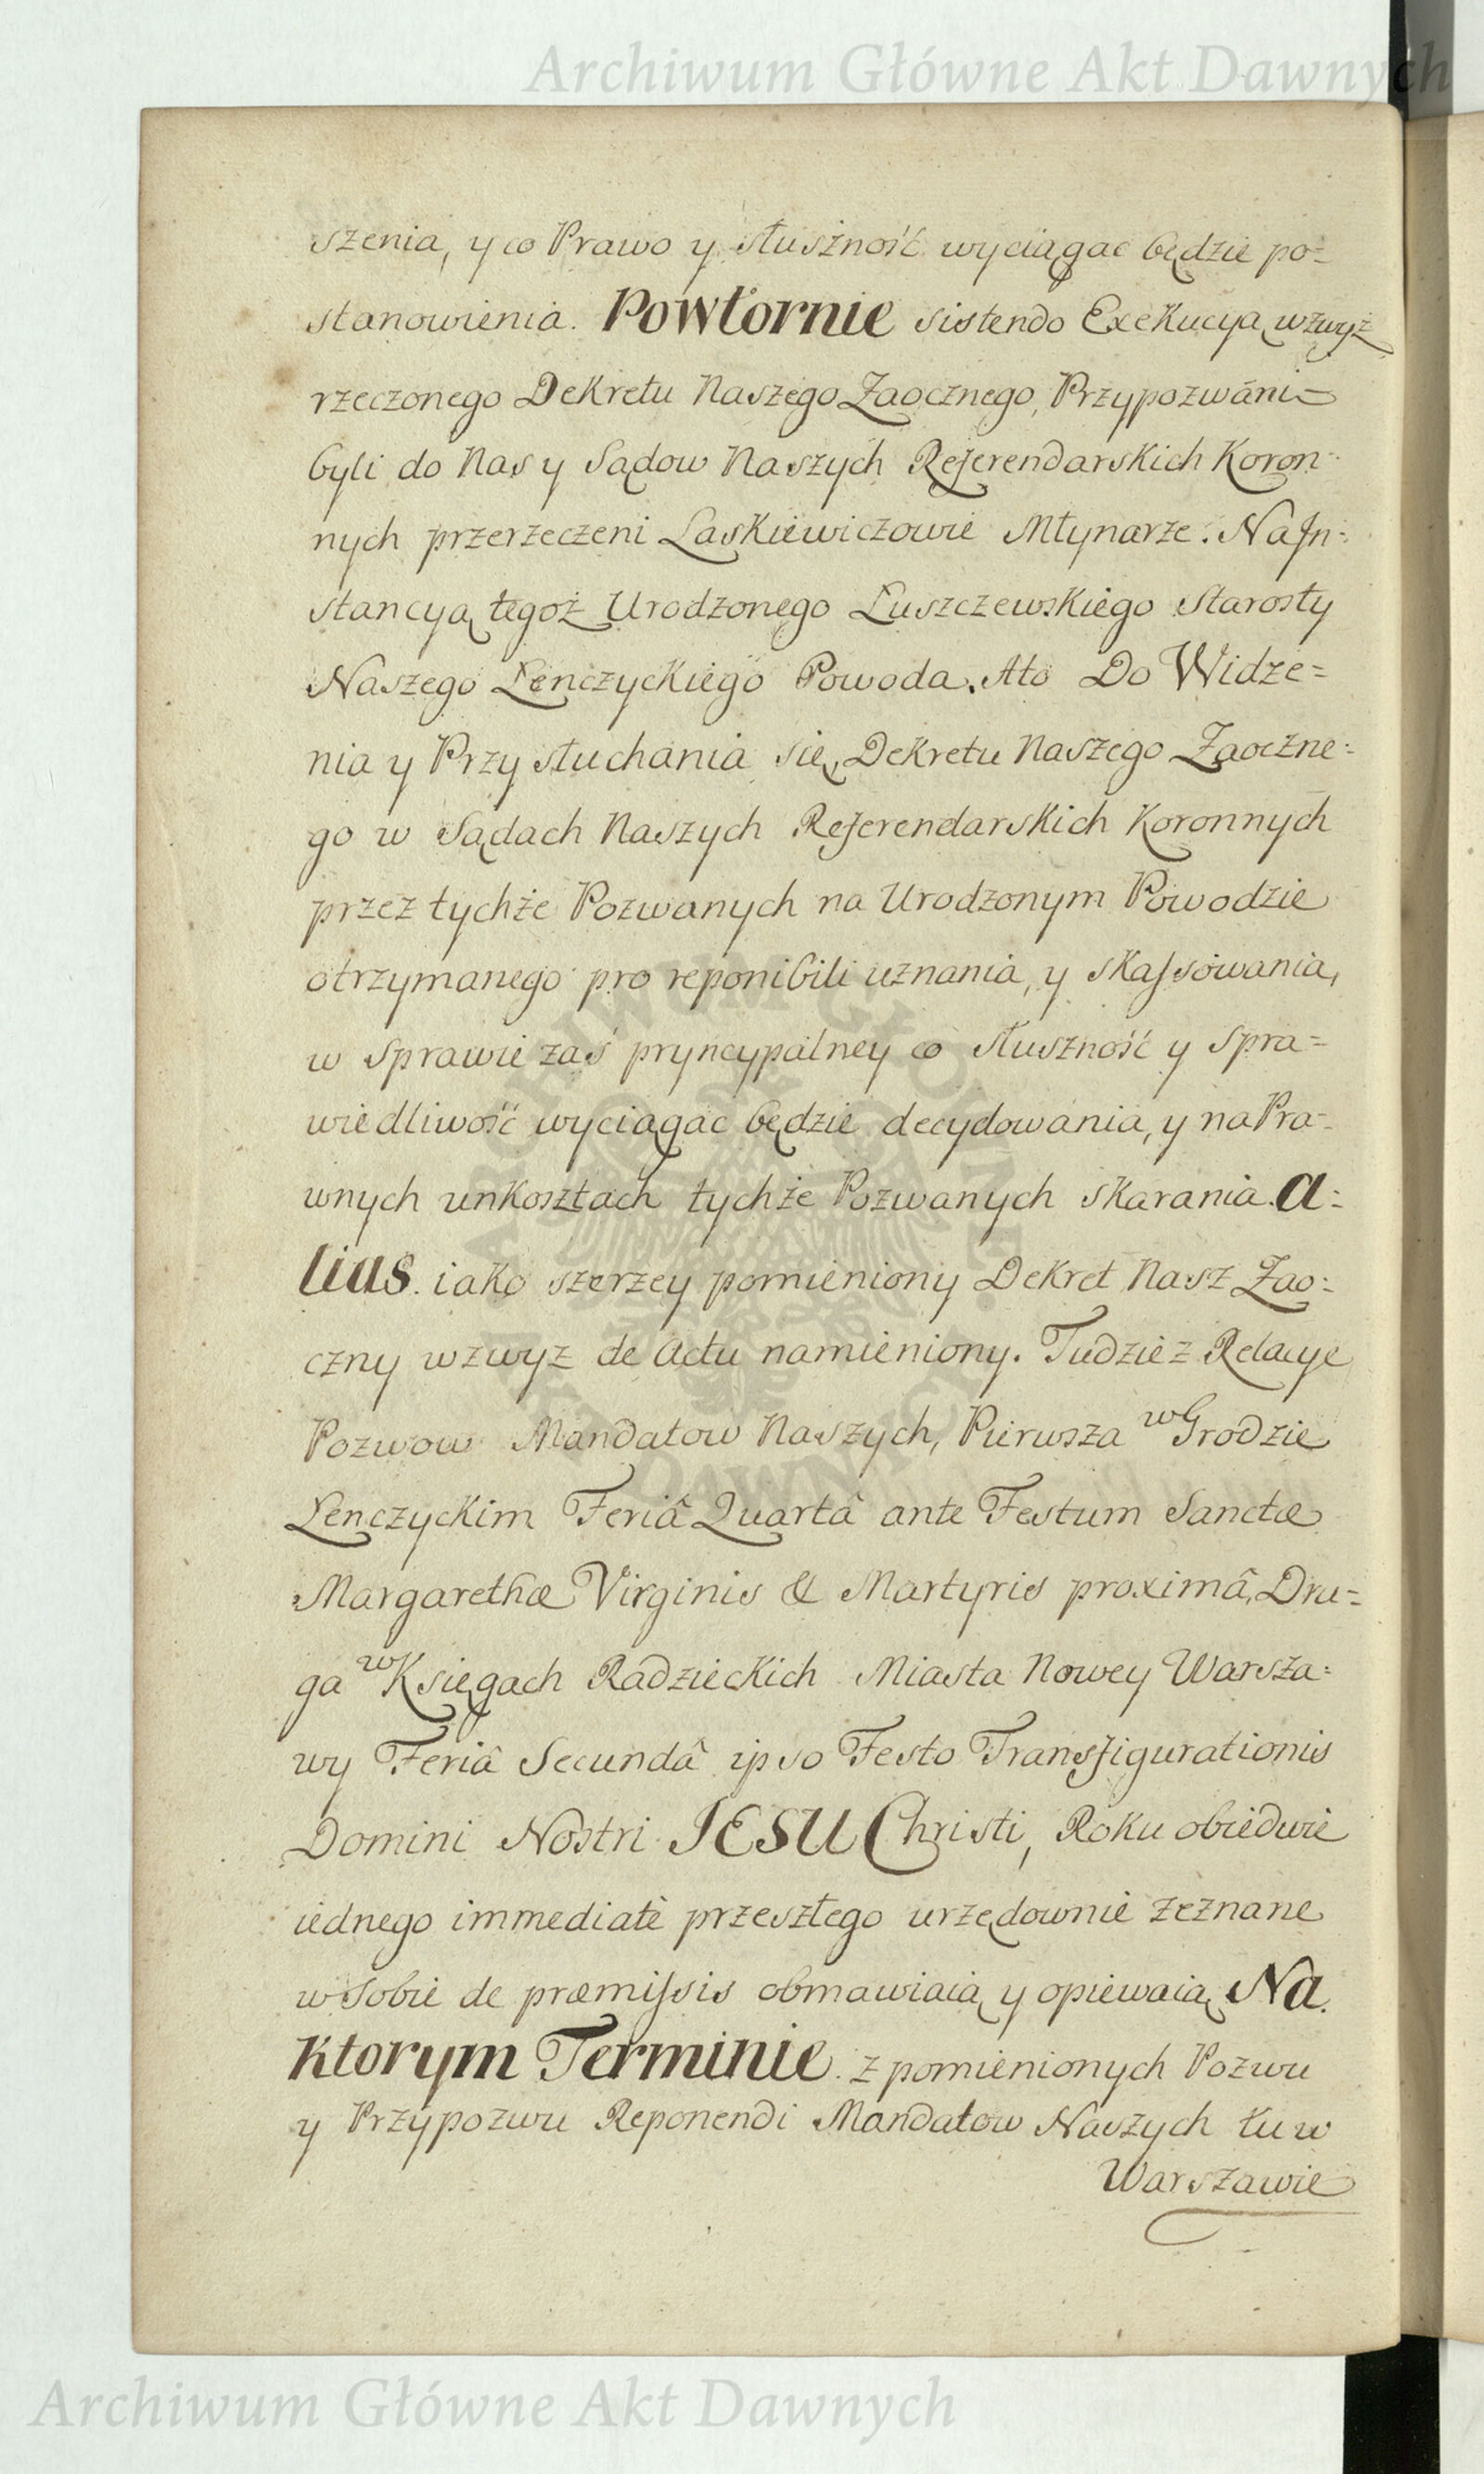 Archiwum Główne Akt Dawnych
szenia, y co Prawo y słuszność wyciągac będzie po=
stanowienia. Powtornie sistendo Exekucyą wzwyż
rzeczonego Dekretu Naszego Zaocznego, Przypozwáni=
byli do Nas y Sądow Naszych Referendarskich Koron=
nych przerzeczeni Laskiewiczowie Młynarze. Na Jn=
stancyą tegoż Urodzonego Łuszczewskiego Starosty
Naszego Łenczyckiego Powoda. Ato Do Widze=
nia y Przysłuchania się Dekretu Naszego Zaoczne=
go w Sądach Naszych Referendarskich Koronnych
przez tychże Pozwanych na Urodzonym Powodzie
otrzymanego pro reponibili uznania, y skassowania,
w Sprawie zaś pryncypalney co słuszność y Spra=
wiedliwość wyciągac będzie decydowania, y na Pra=
wnych unkosztach tychże Pozwanych skarania. a=
lias. iako szerzey pomieniony Dekret Nasz Zao=
czny wzwyz de Actu namieniony. Tudziez Relacye
Pozwow Mandatow Naszych, Pierwsza w Grodzie
Lenczyckim Feriâ Quartâ ante Festum Sanctæ
Margarethæ Virginis & Martyris proximâ, Dru=
ga w Księgach Radzieckich Miasta Nowey Warsza=
wy Feriâ Secundâ ipso Festo Transfigurationis
Domini Nostri JESU Christi, Roku obiedwie
iednego immediatè przeszłego urzędownie zeznane
w Sobie de præmissis obmawiaią y opiewaią Na
Ktorym Terminie. z pomienionych Pozwu
y Przypozwu Reponendi Mandatow Naszych tu w
Warszawie
ARCHIWUM GŁÓWNE AKT DAWNYCH
Archiwum Główne Akt Dawnych